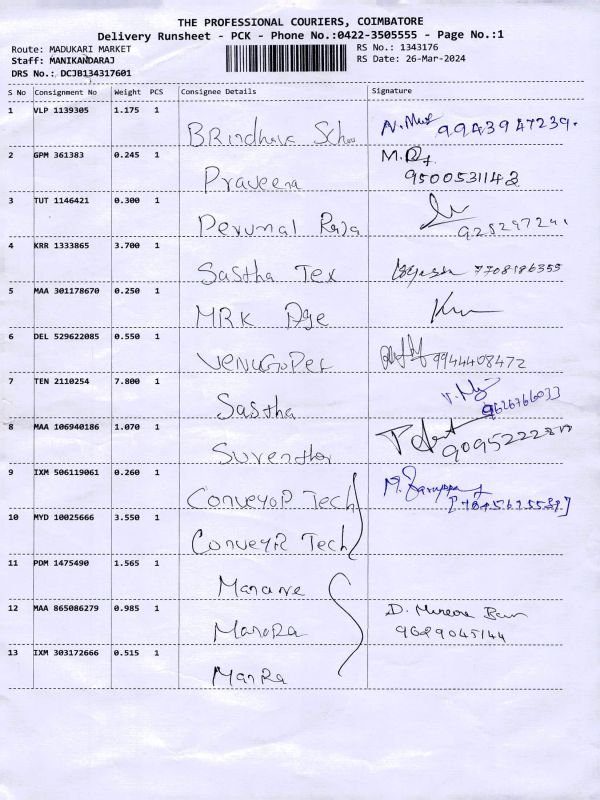 THE PROFESSIONAL COURIERS, COIMBATORE
Delivery Runsheet - PCK - Phone No.:0422-3505555 - Page No.:1
Route: MADUKARI MARKET RS No.: 1343176
Staff: MANIKANDARAJ RS Date: 26-Mar-2024
DRS No.: DCJB134317601
S No Consignment No Weight PCS Consignee Details Signature
1 VLP 1139305 1.175 1 9943947239.
2 GPM 361383 0.245 1 Praveena
3 TUT 1146421 0.300 1 Perumal Raja
4 KRR 1333865 3.700 1 Sastha Tex 7708186355
5 MAA 301178670 0.250 1 MRK
6 DEL 529622085 0.550 1 9944408472
7 TEN 2110254 7.800 1 Sastha
8 MAA 106940186 1.070 1
9 IXM 506119061 0.260 1 Conveyor Tech
10 MYD 10025666 3.550 1 Conveyr Tech
11 PDM 1475490 1.565 1
12 MAA 865086279 0.985 1 ManoRa 9629045144
13 IXM 303172666 0.515 1 ManRa